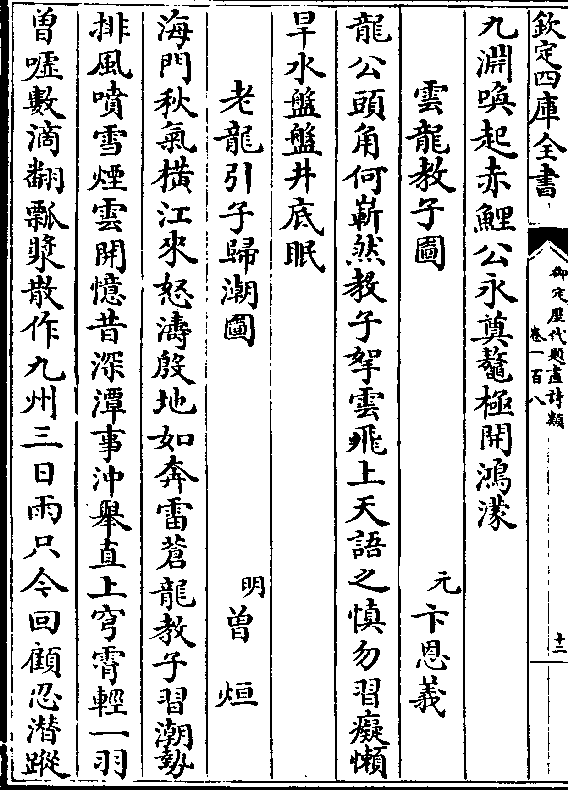 欽定四庫全書
御定歷代題畫詩類
卷一百八
十二
九淵喚起赤鯉公永奠鼇極開鴻濛
雲龍教子圖
元卞思義
龍公頭角何嶄然教子拏雲飛上天語之慎勿習癡懶
旱水盤盤井底眠
老龍引子歸潮圖
明曾烜
海門秋氣橫江來怒濤殷地如奔雷蒼龍教子習潮勢
排風噴雪煙雲開憶昔深潭事沖舉直上穹霄輕一羽
曽噓數滴翻瓢漿散作九州三日雨只今回顧忍潛蹤